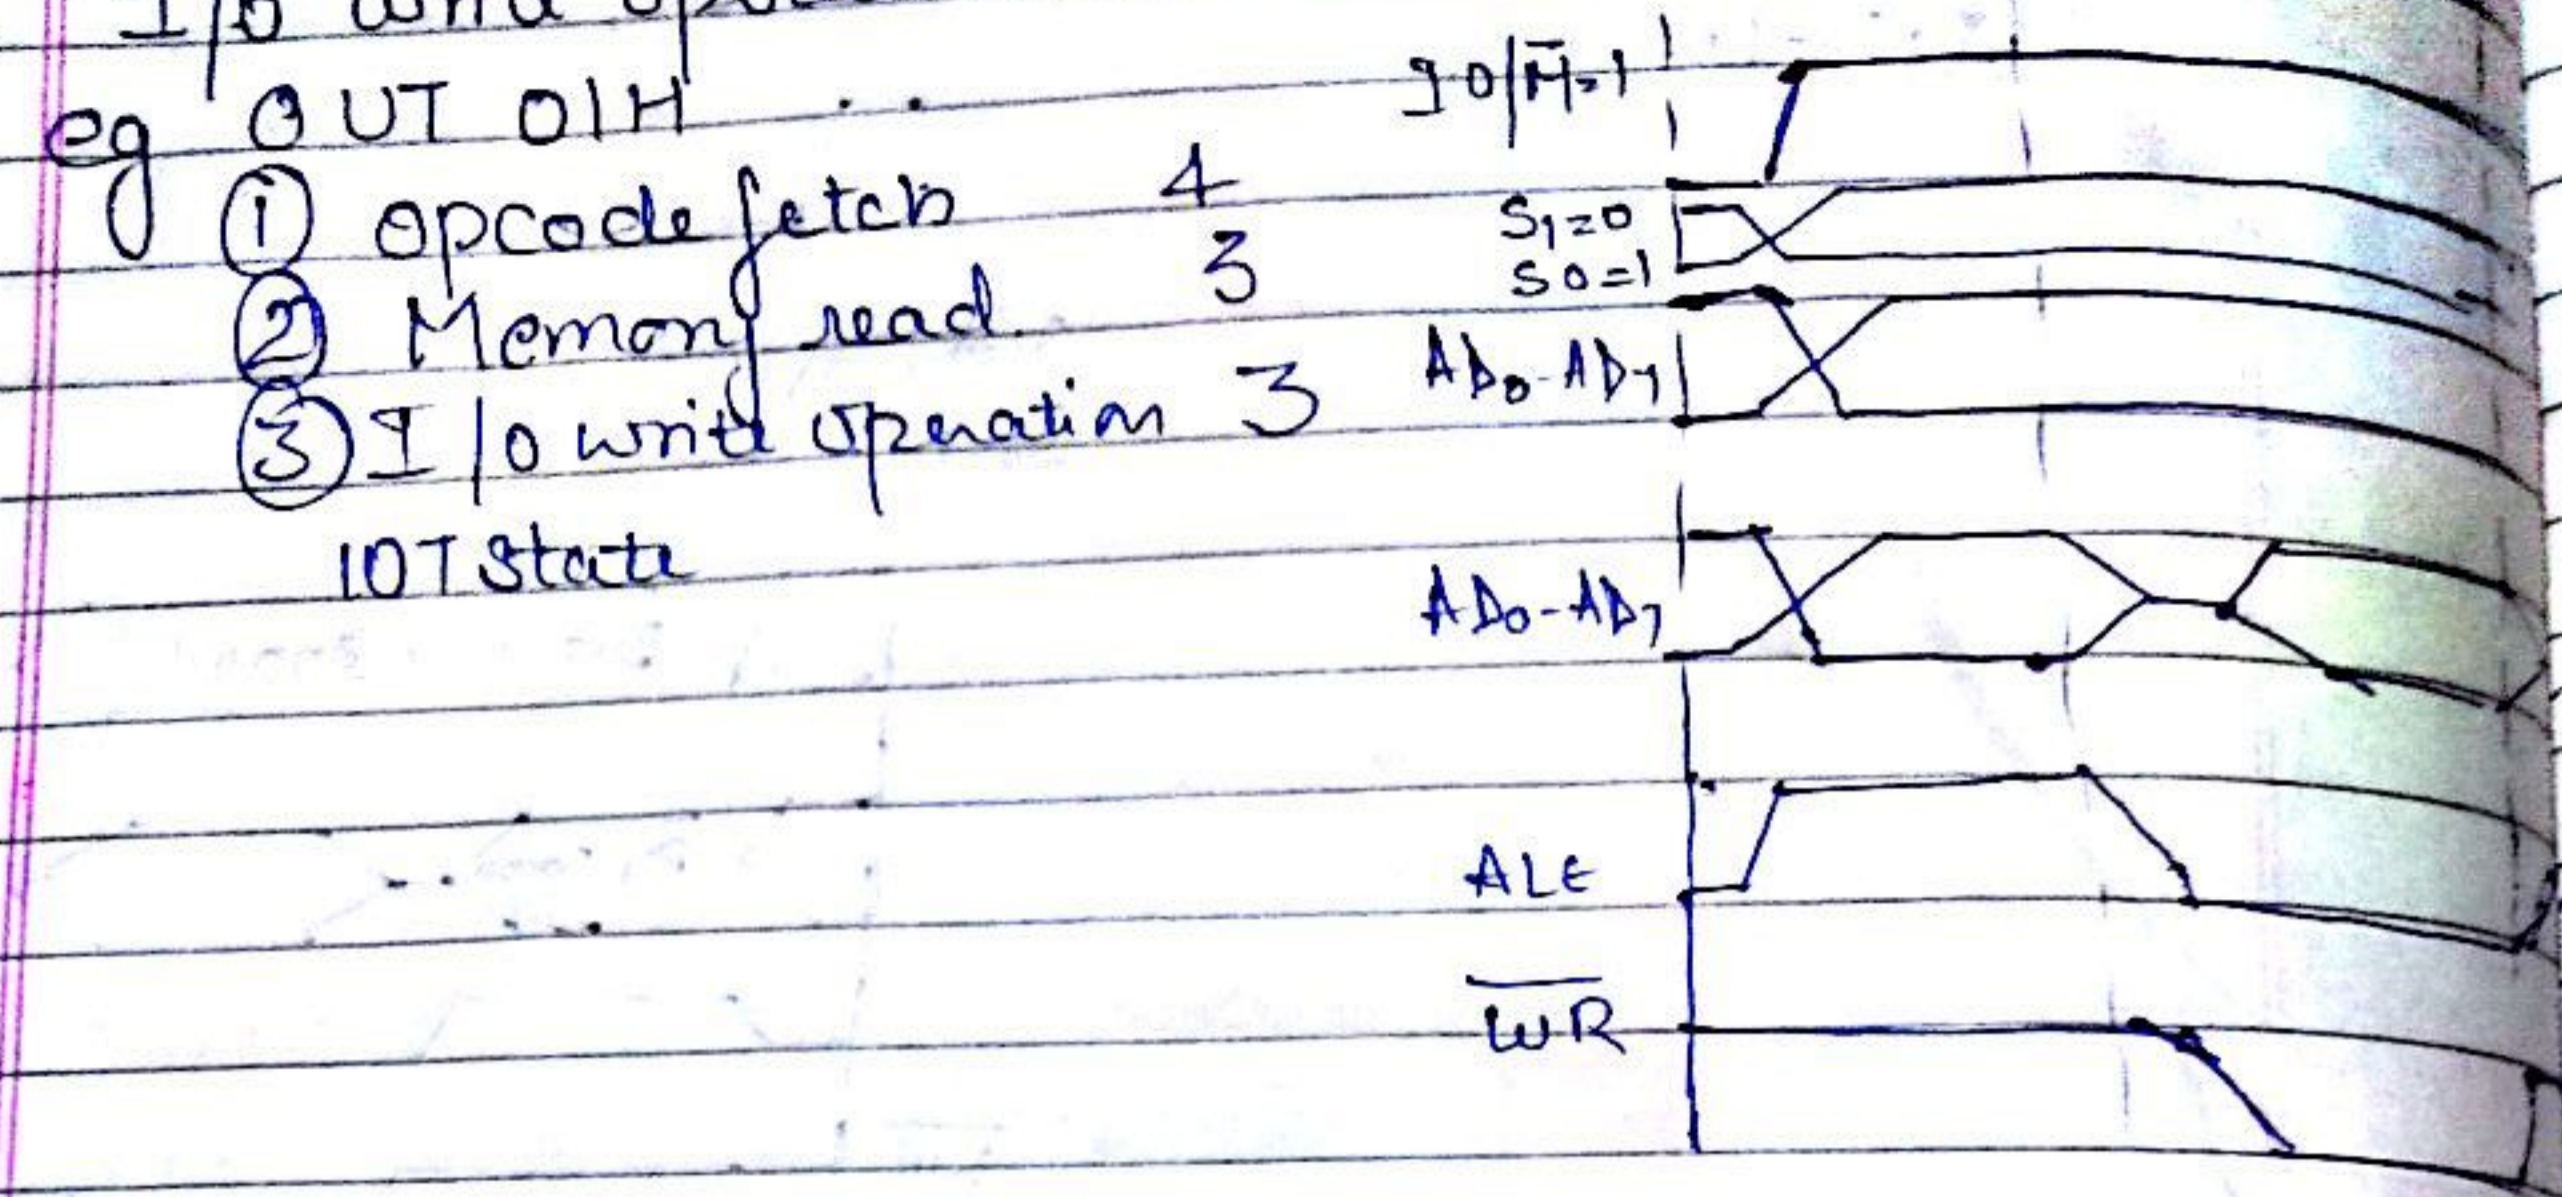 I/O
eg OUT 01H
① opcode fetch 4
② Memory read 3
③ I/O write operation 3
10T State
IO/M̅=1
S₁=0
S0=1
AD₀-AD₇
AD₀-AD₇
ALE
W̅R̅